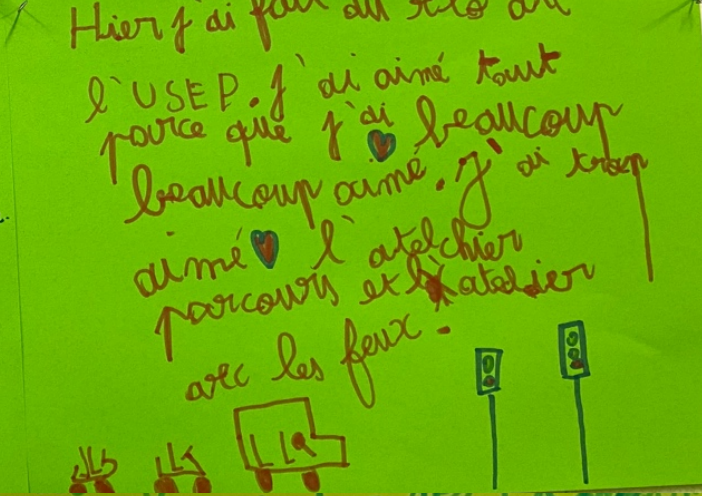 Hier j'ai fait du vélo
l'USEP. j'ai aimé tout
parce que j'ai beaucoup
beaucoup aimé. j'ai trop
aimé l'atelchier
parcours et l'atelier
avec les feux.